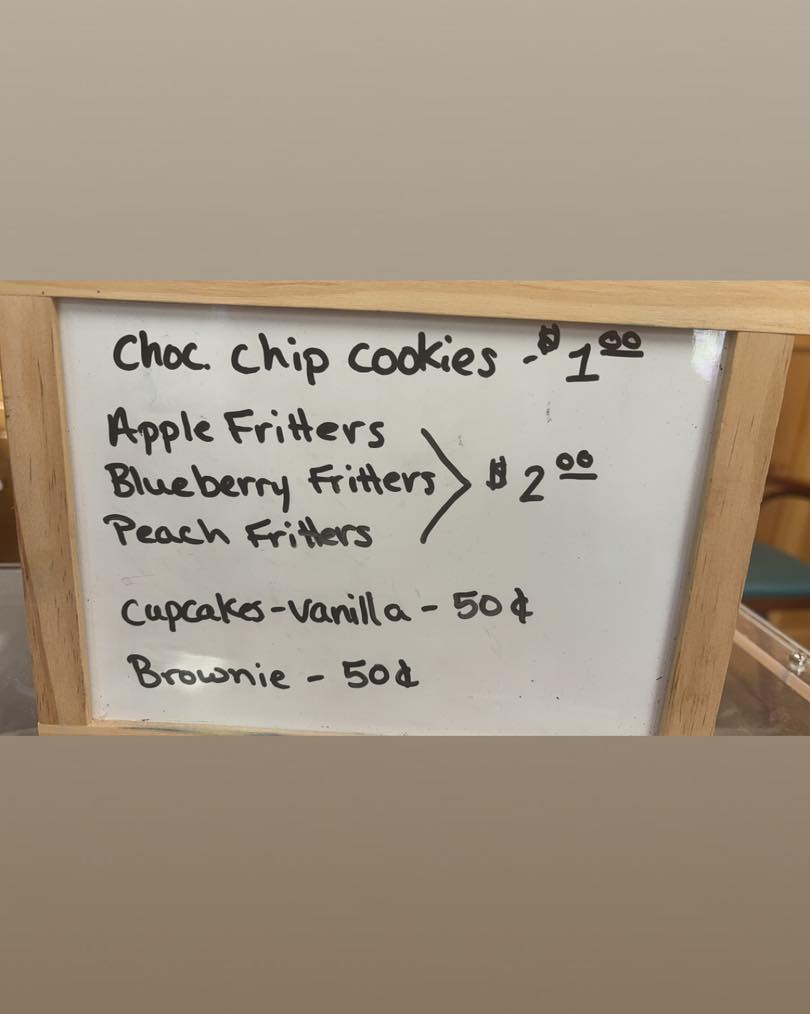 Choc. Chip Cookies - $1.00
Apple Fritters
Blueberry Fritters > $2.00
Peach Fritters
Cupcakes - Vanilla - 50¢
Brownie - 50¢